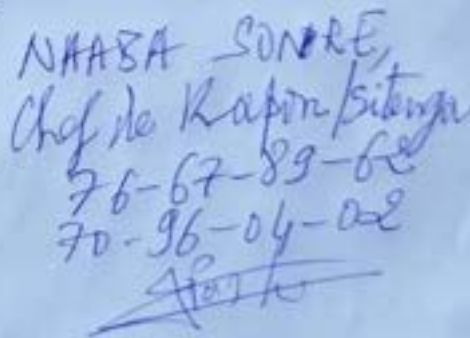 NAABA SONRE,
Chef de Kapon/sitenga
76-67-89-62
70-96-04-02